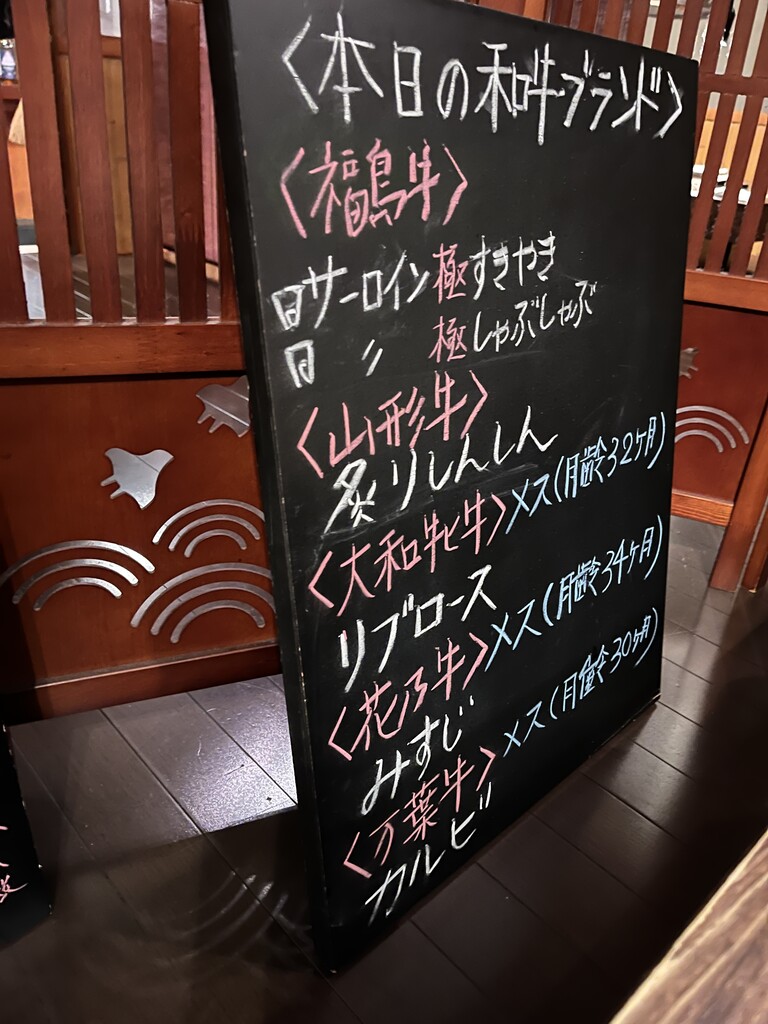 〈本日の和牛ブランド〉
〈福島牛〉
サーロイン極すきやき
〃 極しゃぶしゃぶ
〈山形牛〉
炙りしんしん
〈大和牝牛〉メス(月齢32ケ月)
リブロース
〈花乃牛〉メス(月齢34ケ月)
みすじ
〈万葉牛〉メス(月齢30ケ月)
カルビ